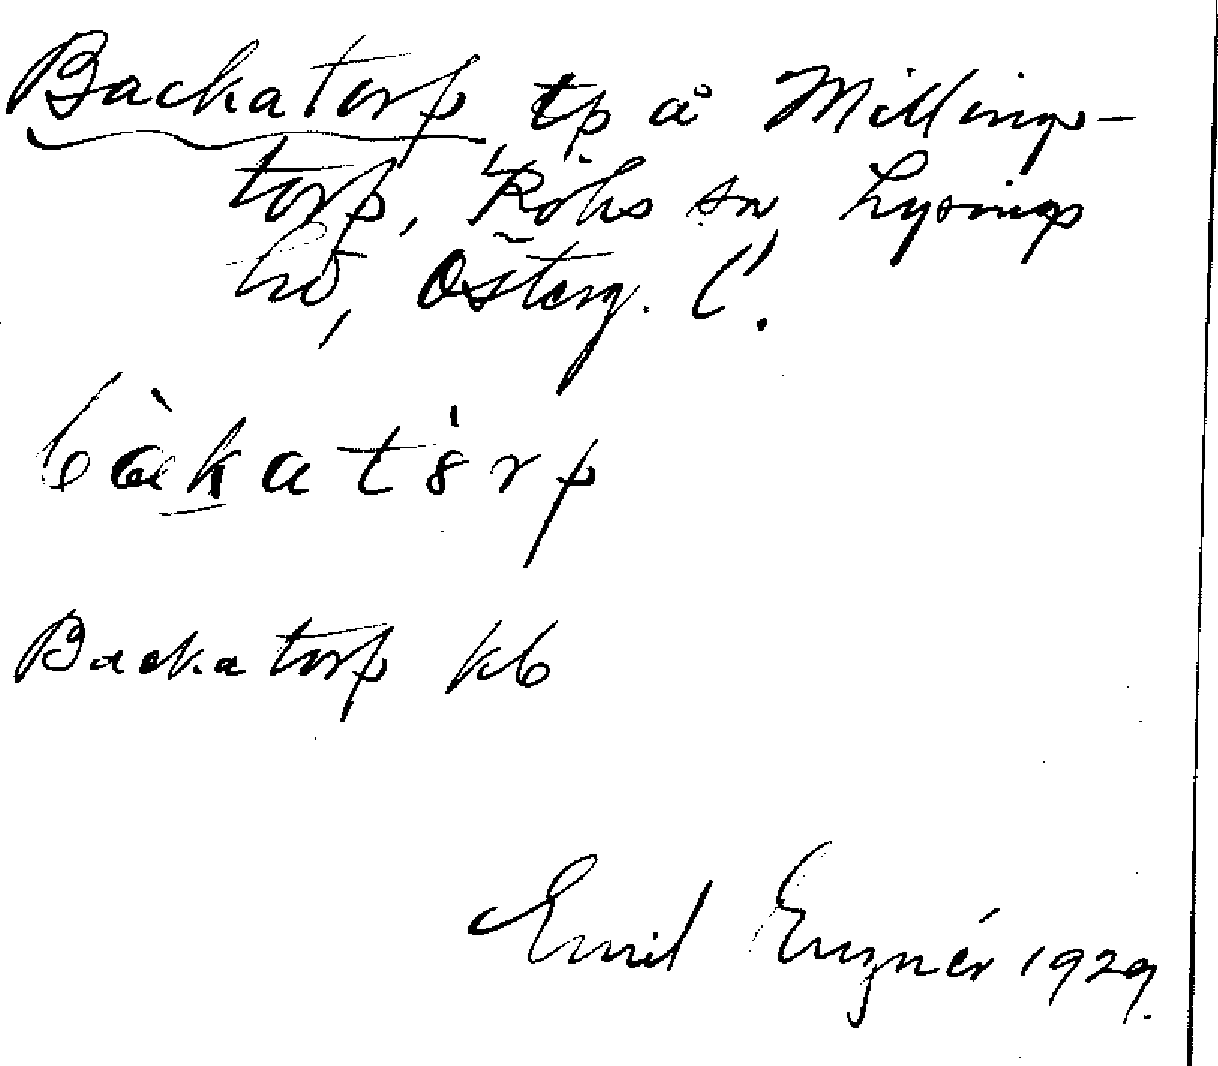 Backatorp tp å Millings-
torp, Röks sn, Lysings
hd, Österg. l.
bàkatȯrp
Backatorp kb
Emil Enznér 1929.